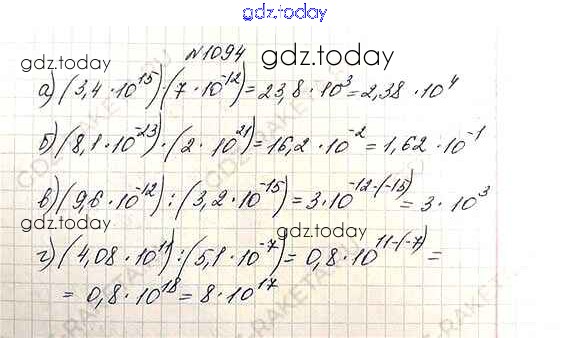 gdz.today
№1094
gdz.today
а) (3,4 · 10¹⁵) · (7 · 10⁻¹²) = 23,8 · 10³ = 2,38 · 10⁴
б) (8,1 · 10⁻²³) · (2 · 10²¹) = 16,2 · 10⁻² = 1,62 · 10⁻¹
в) (9,6 · 10⁻¹²) : (3,2 · 10⁻¹⁵) = 3 · 10⁻¹²⁻⁽⁻¹⁵⁾ = 3 · 10³
gdz.today
gdz.today
г) (4,08 · 10¹¹) : (5,1 · 10⁻⁷) = 0,8 · 10¹¹⁻⁽⁻⁷⁾ =
= 0,8 · 10¹⁸ = 8 · 10¹⁷